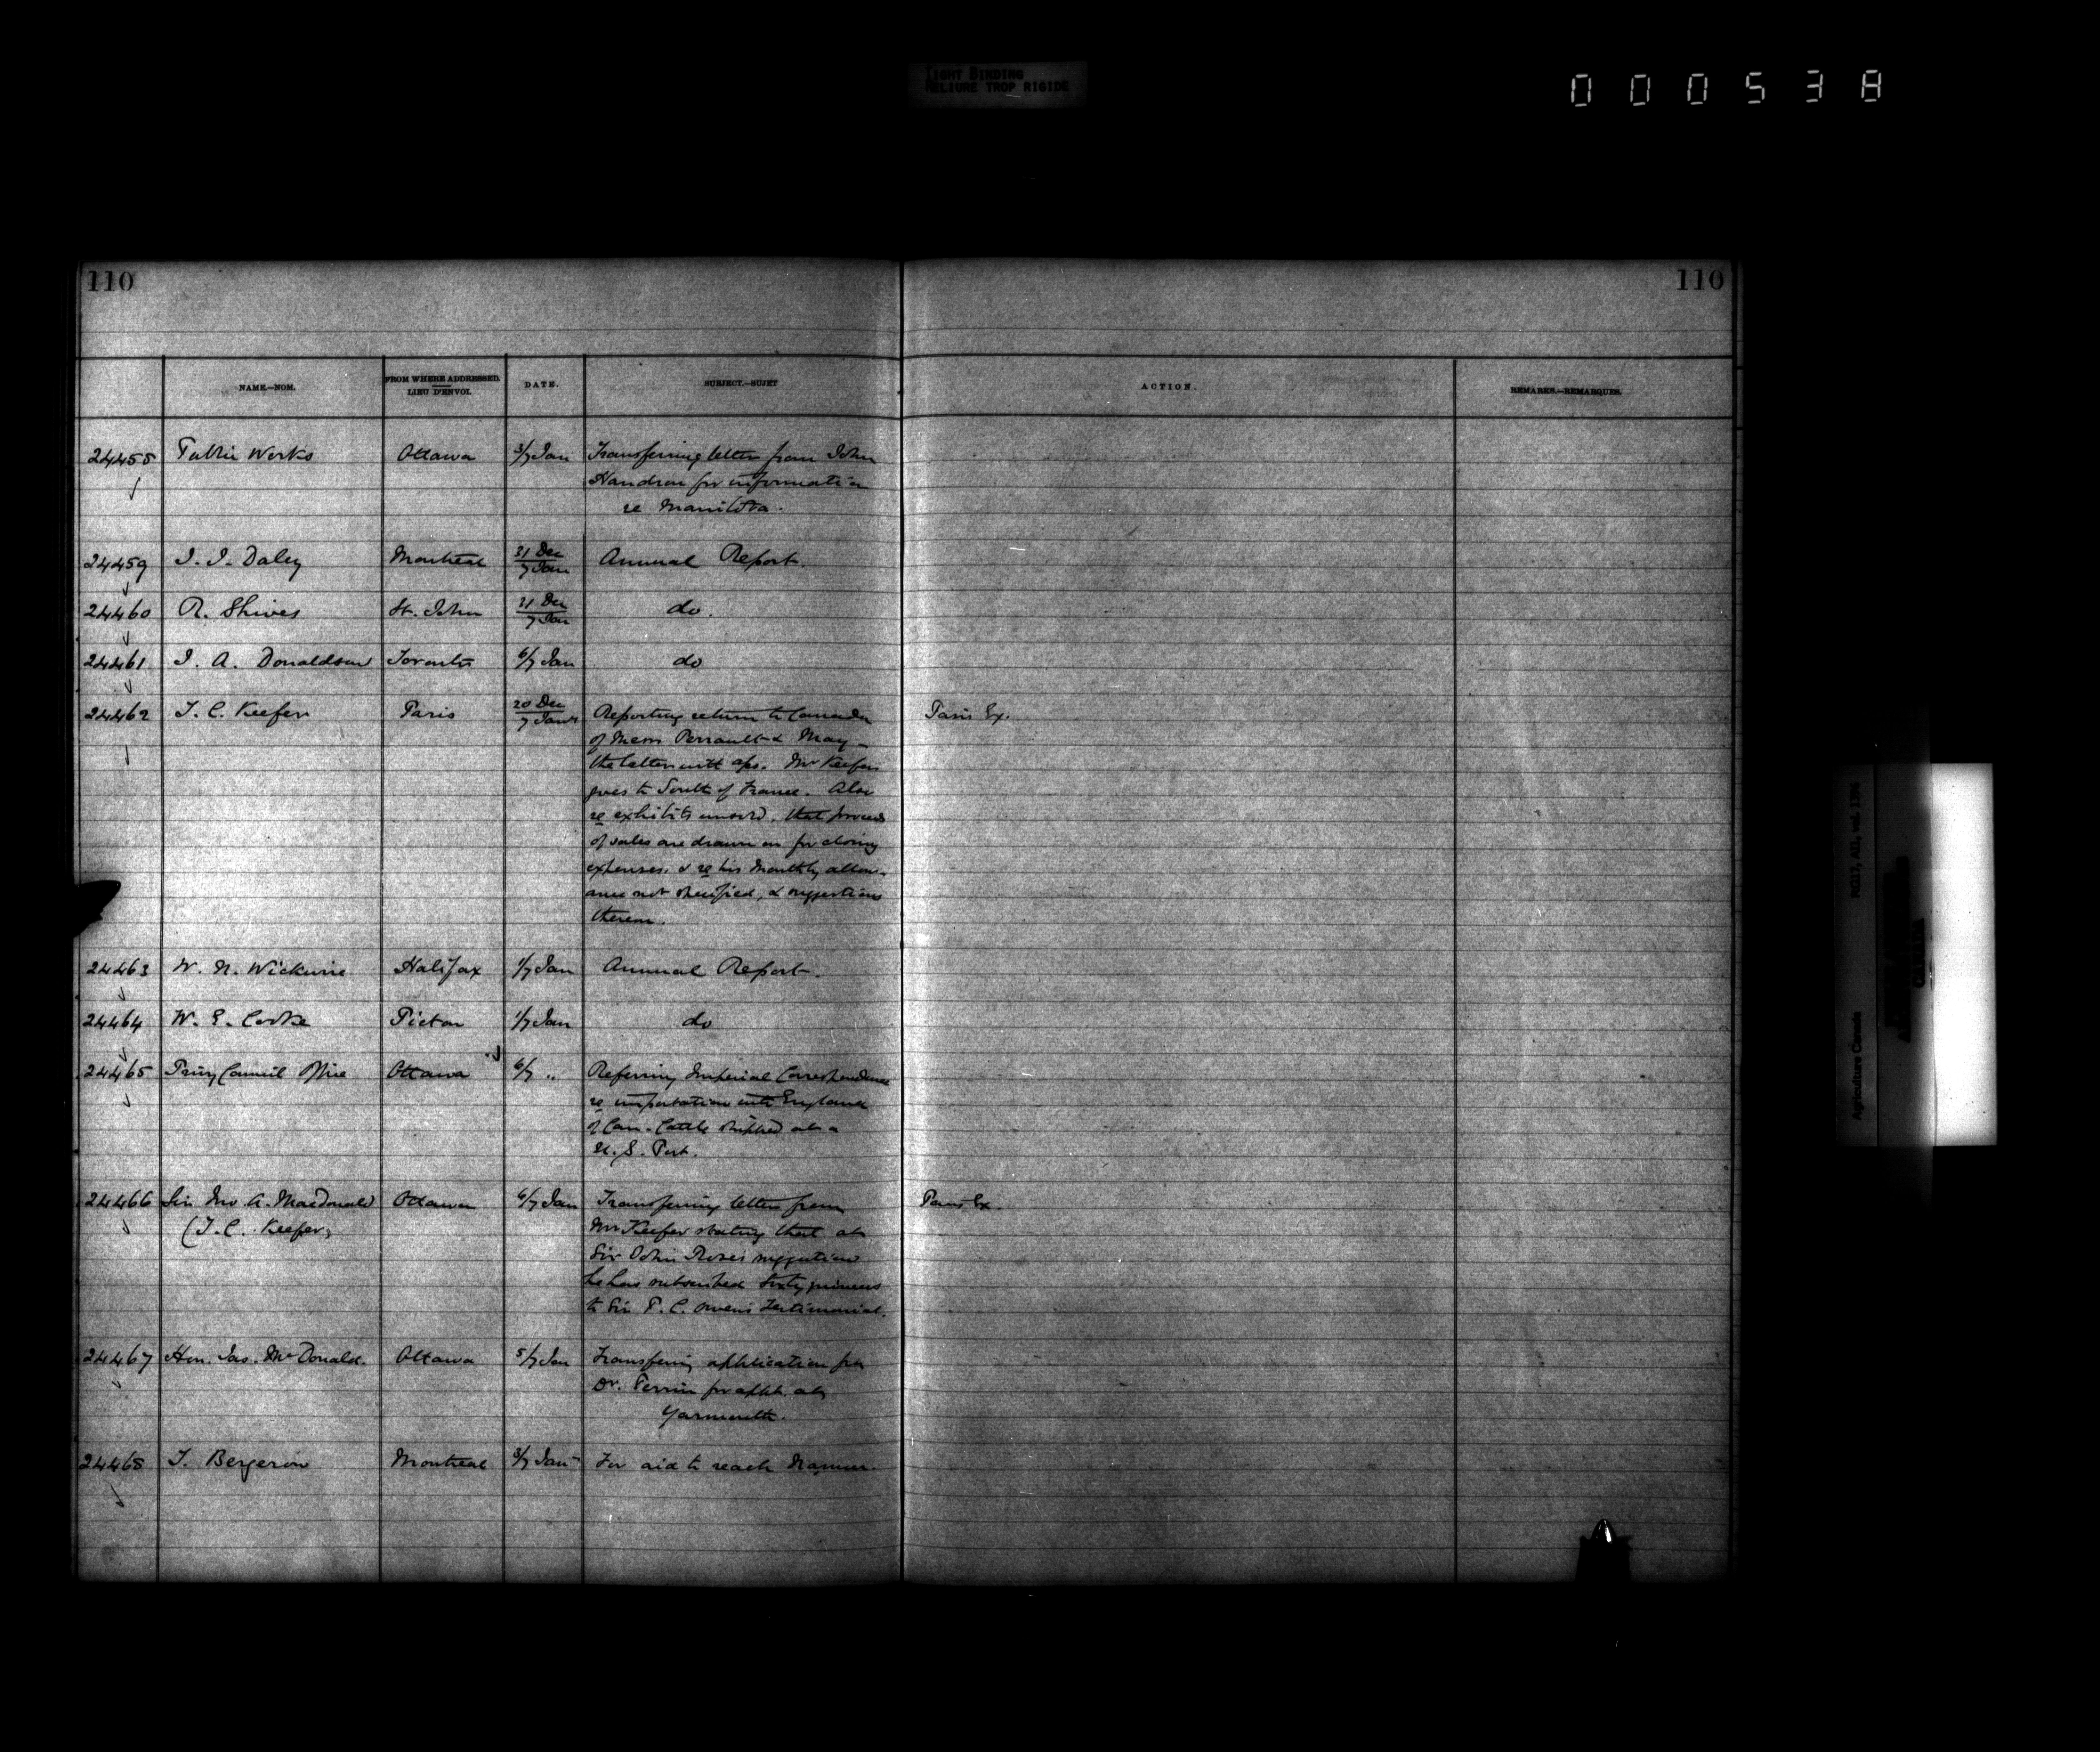 TIGHT BINDING
RELIURE TROP RIGIDE
000538
110
110
NAME.—NOM.
FROM WHERE ADDRESSED.
LIEU D'ENVOI.
DATE.
SUBJECT.—SUJET
ACTION.
REMARKS.—REMARQUES.
24458 Public Works Ottawa 3/7 Jan Transferring letter from John
for information
re Manitoba.
24459 J. J. Daley Montreal 31 Dec / 7 Jan Annual Report.
24460 R. Shives St. John 31 Dec / 7 Jan do.
24461 J. A. Donaldson Toronto 6/7 Jan do
24462 T. C. Keefer Paris 20 Dec / 7 Jany Reporting return to Canada Paris Ex.
of Messrs Perrault & May –
the latter with a/cs. Mr Keefer
goes to South of France. Also
re exhibits unsold, that proceeds
of sales are drawn on for closing
expenses, & re his monthly allow-
ance not specified, & suggestions
thereon.
24463 W. N. Wickwire Halifax 1/7 Jan Annual Report.
24464 W. E. Cooke Pictou 1/7 Jan do
24465 Privy Council Office Ottawa 6/7 " Referring Imperial Correspondence
re importation into England
of Can. Cattle shipped at a
U. S. Port.
24466 Sir Jno. A. Macdonald Ottawa 6/7 Jan Transferring letter from Paris Ex.
(T. C. Keefer) Mr Keefer stating that at
Sir John Rose's suggestion
he has subscribed sixty guineas
to Sir P. C. Owen's Testimonial.
24467 Hon. Jas. McDonald. Ottawa 5/7 Jan Transferring application for
Dr. Perrin for appt. at
Yarmouth.
24468 T. Bergeron Montreal 3/7 Jany For aid to reach
RG17, AII, vol. 1396
Agriculture Canada